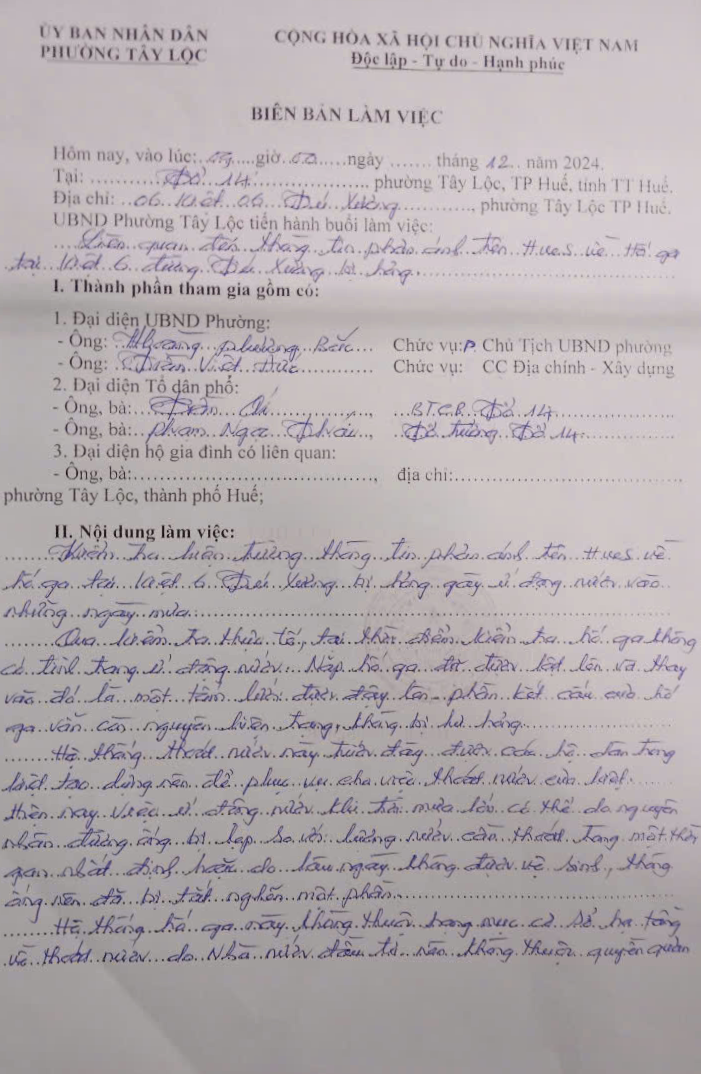 ỦY BAN NHÂN DÂN
PHƯỜNG TÂY LỘC
CỘNG HÒA XÃ HỘI CHỦ NGHĨA VIỆT NAM
Độc lập - Tự do - Hạnh phúc
BIÊN BẢN LÀM VIỆC
Hôm nay, vào lúc: giờ ngày ....... tháng 12 năm 2024.
Tại: TDP 14, phường Tây Lộc, TP Huế, tỉnh TT Huế.
Địa chỉ: 06 Kiệt 06 Tú Xương, phường Tây Lộc TP Huế.
UBND Phường Tây Lộc tiến hành buổi làm việc:
Liên quan đến thông tin phản ánh trên HueS về Hố ga
tại Kiệt 6 đường Tú Xương bị hỏng
I. Thành phần tham gia gồm có:
1. Đại diện UBND Phường:
- Ông: Hoàng Phương Bắc Chức vụ: P. Chủ Tịch UBND phường
- Ông: Trần Viết Chức vụ: CC Địa chính - Xây dựng
2. Đại diện Tổ dân phố:
- Ông, bà: Trần, BTCB TDP 14
- Ông, bà: Phạm Ngọc, Tổ trưởng TDP 14
3. Đại diện hộ gia đình có liên quan:
- Ông, bà:......................................, địa chỉ:......................................
phường Tây Lộc, thành phố Huế;
II. Nội dung làm việc:
Kiểm tra hiện trường thông tin phản ánh trên HueS về
hố ga tại Kiệt 6 Tú Xương bị hỏng gây ứ đọng nước vào
những ngày mưa.
Qua kiểm tra thực tế, tại thời điểm kiểm tra hố ga không
có tình trạng ứ đọng nước. Nắp hố ga đã được lật lên và thay
vào đó là một tấm lưới được đậy lên - phần kết cấu của hố
ga vẫn còn nguyên hiện trạng, không bị hư hỏng.
Hệ thống thoát nước này trước đây được các hộ dân trong
kiệt tạo dựng nên để phục vụ cho việc thoát nước của kiệt.
Hiện nay việc ứ đọng nước khi trời mưa lớn có thể do nguyên
nhân đường ống bị hẹp so với lượng nước cần thoát trong một thời
gian nhất định hoặc do lâu ngày không được vệ sinh, thông
ống nên đã bị tắt nghẽn một phần.
Hệ thống hố ga này không thuộc hạng mục cơ sở hạ tầng
về thoát nước do Nhà nước đầu tư nên không thuộc quyền quản